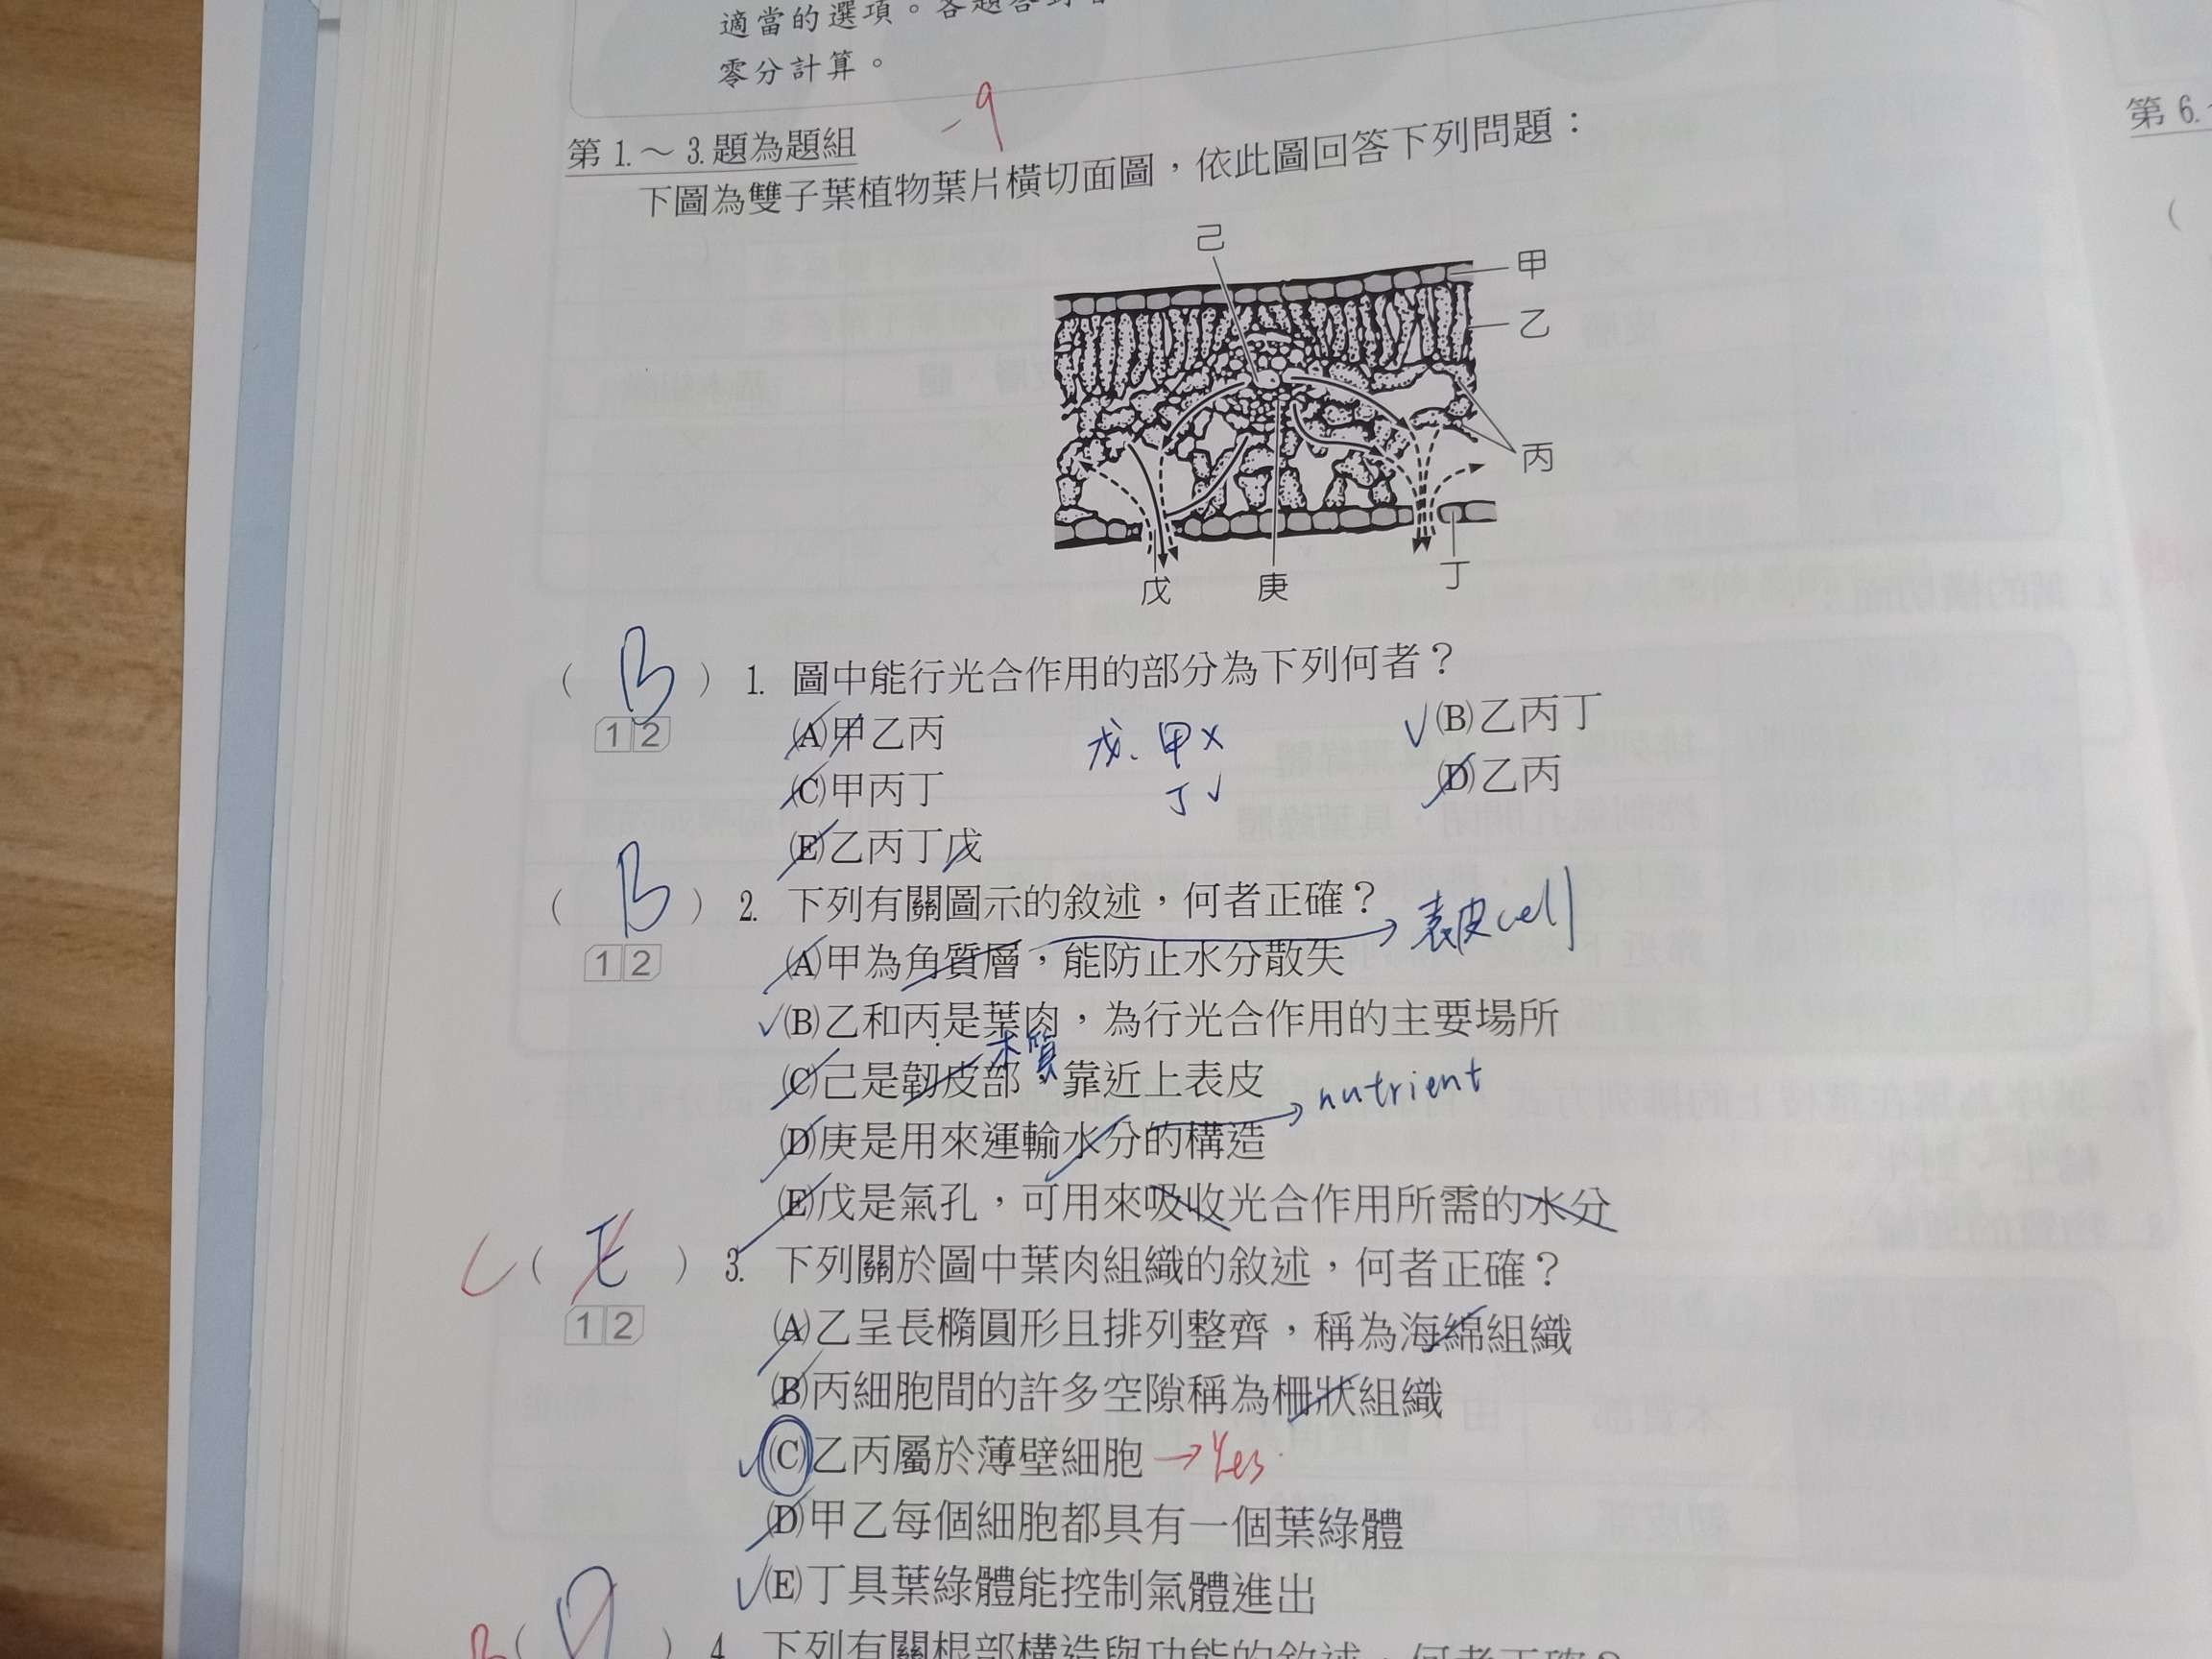 適當的選項。各題答對
零分計算。
-9
第 1.～3.題為題組
第 6.
下圖為雙子葉植物葉片橫切面圖，依此圖回答下列問題：
(
己
甲
乙
丙
戊
庚
丁
( B ) 1. 圖中能行光合作用的部分為下列何者？
1 2
(A)甲乙丙
戊、甲×
✓(B)乙丙丁
(C)甲丙丁
丁✓
(D)乙丙
(E)乙丙丁戊
( B ) 2. 下列有關圖示的敘述，何者正確？
→表皮cell
1 2
(A)甲為角質層，能防止水分散失
✓(B)乙和丙是葉肉，為行光合作用的主要場所
木質
(C)己是韌皮部，靠近上表皮
→nutrient
(D)庚是用來運輸水分的構造
(E)戊是氣孔，可用來吸收光合作用所需的水分
C ( E ) 3. 下列關於圖中葉肉組織的敘述，何者正確？
1 2
(A)乙呈長橢圓形且排列整齊，稱為海綿組織
(B)丙細胞間的許多空隙稱為柵狀組織
✓(C)乙丙屬於薄壁細胞→Yes.
(D)甲乙每個細胞都具有一個葉綠體
✓(E)丁具葉綠體能控制氣體進出
B ( ) 4. 下列有關根部構造與功能的敘述，何者正確？